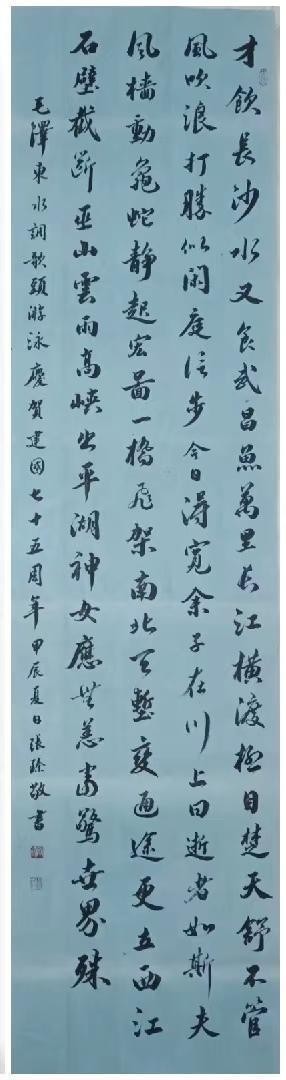 才饮長沙水又食武昌魚萬里长江橫渡極目楚天舒不管
風吹浪打勝似闲庭信步今日得宽余子在川上曰逝者如斯夫
风樯動龜蛇静起宏图一橋飛架南北天塹变通途更立西江
石壁截断巫山雲雨高峡出平湖神女應无恙當驚世界殊
毛澤東水調歌頭游泳慶賀建國七十五周年甲辰夏日張敬書